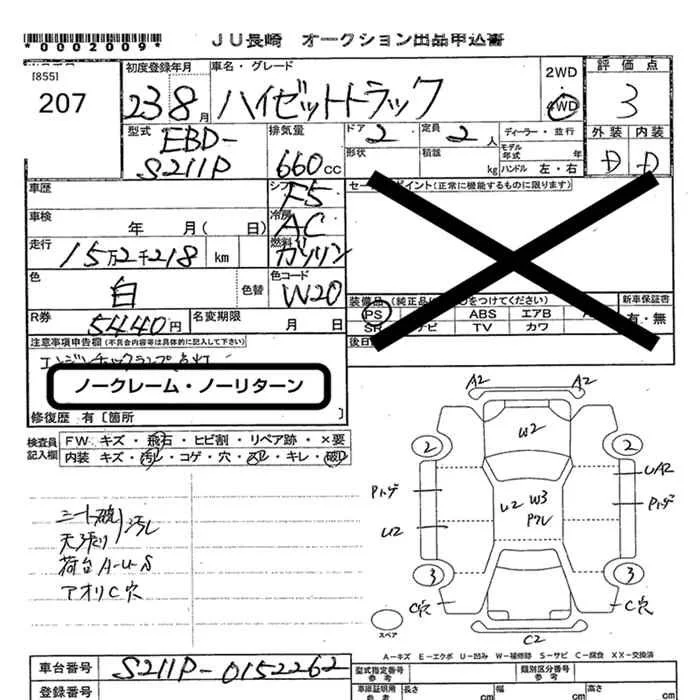 *0002009*
JU長崎 オークション出品申込書
[855]
207
初度登録年月
23 8月
車名・グレード
ハイゼットトラック
2WD
4WD
評価点
3
型式
EBD-
S211P
排気量
660cc
ドア
2
定員
2人
ディーラー・並行
形状
積載
kg
モデル年式 年
ハンドル 左・右
外装 内装
D D
車歴
シフト
F5
セールスポイント(正常に機能するものに限ります)
車検
年 月( 日)
冷房
AC
走行
15万2千218 km
燃料
ガソリン
色
白
色替
色コード
W20
装備品 (純正品に○をつけてください)
新車保証書
PS ABS エアB
SR ナビ TV カワ
有・無
R券
5440円
名変期限
月 日
後日
注意事項申告欄(不具合内容等は具体的に記入して下さい)
エンジンチェックランプ点灯
ノークレーム・ノーリターン
修復歴 有〔箇所 〕
検査員記入欄
FW キズ・飛石・ヒビ割・リペア跡・×要
内装 キズ・汚レ・コゲ・穴・スレ・キレ・破レ
シート破
汚レ
天張り
荷台A-U-S
アオリC穴
A2 A2
W2
2 2
Pトゲ
UA2
U2 W3
Pワレ
Pトゲ
U2
3 3
C穴 C穴
C2
スペア
A-キズ E-エクボ U-凹み W-補修跡 S-サビ C-腐食 XX-交換済
車台番号
S211P-0152262
登録番号
型式指定番号
参考
類別区分番号
参考
車庫証明用
参考
長さ cm
幅 cm
高さ cm